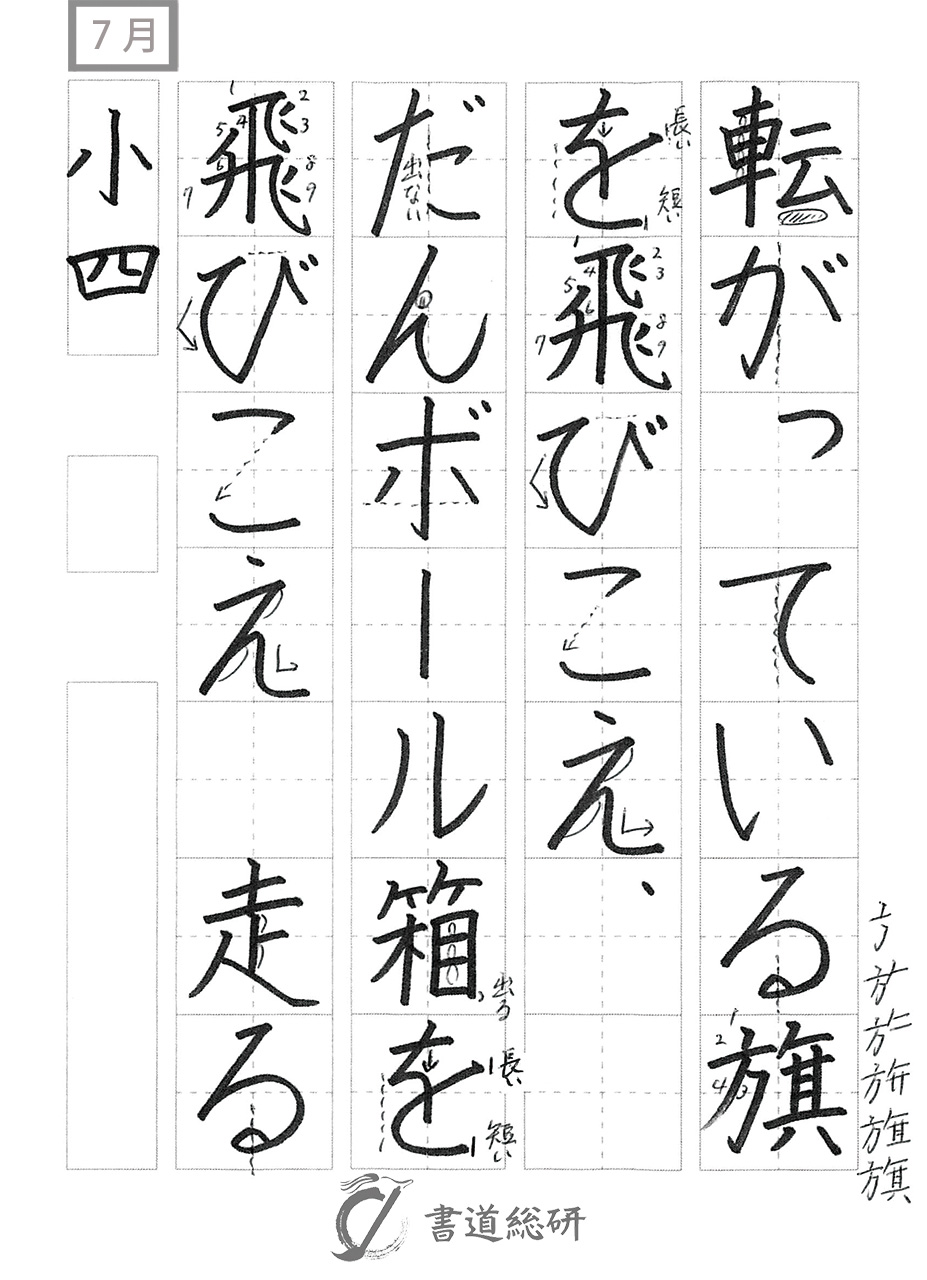 7月
転がっている旗
を飛びこえ、
だんボール箱を
飛びこえ 走る
小四
長い
短い
出ない
出る
長い
短い
書道総研